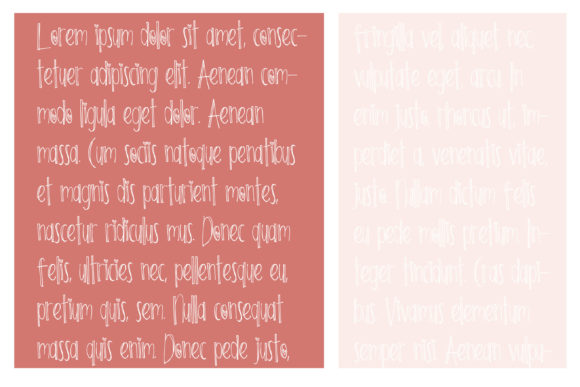 Lorem ipsum dolor sit amet, consec-
tetuer adipiscing elit. Aenean com-
modo ligula eget dolor. Aenean
massa. Cum sociis natoque penatibus
et magnis dis parturient montes,
nascetur ridiculus mus. Donec quam
felis, ultricies nec, pellentesque eu,
pretium quis, sem. Nulla consequat
massa quis enim. Donec pede justo,
fringilla vel, aliquet nec,
vulputate eget, arcu. In
enim justo, rhoncus ut, im-
perdiet a, venenatis vitae,
justo. Nullam dictum felis
eu pede mollis pretium. In-
teger tincidunt. Cras dapi-
bus. Vivamus elementum
semper nisi. Aenean vulpu-